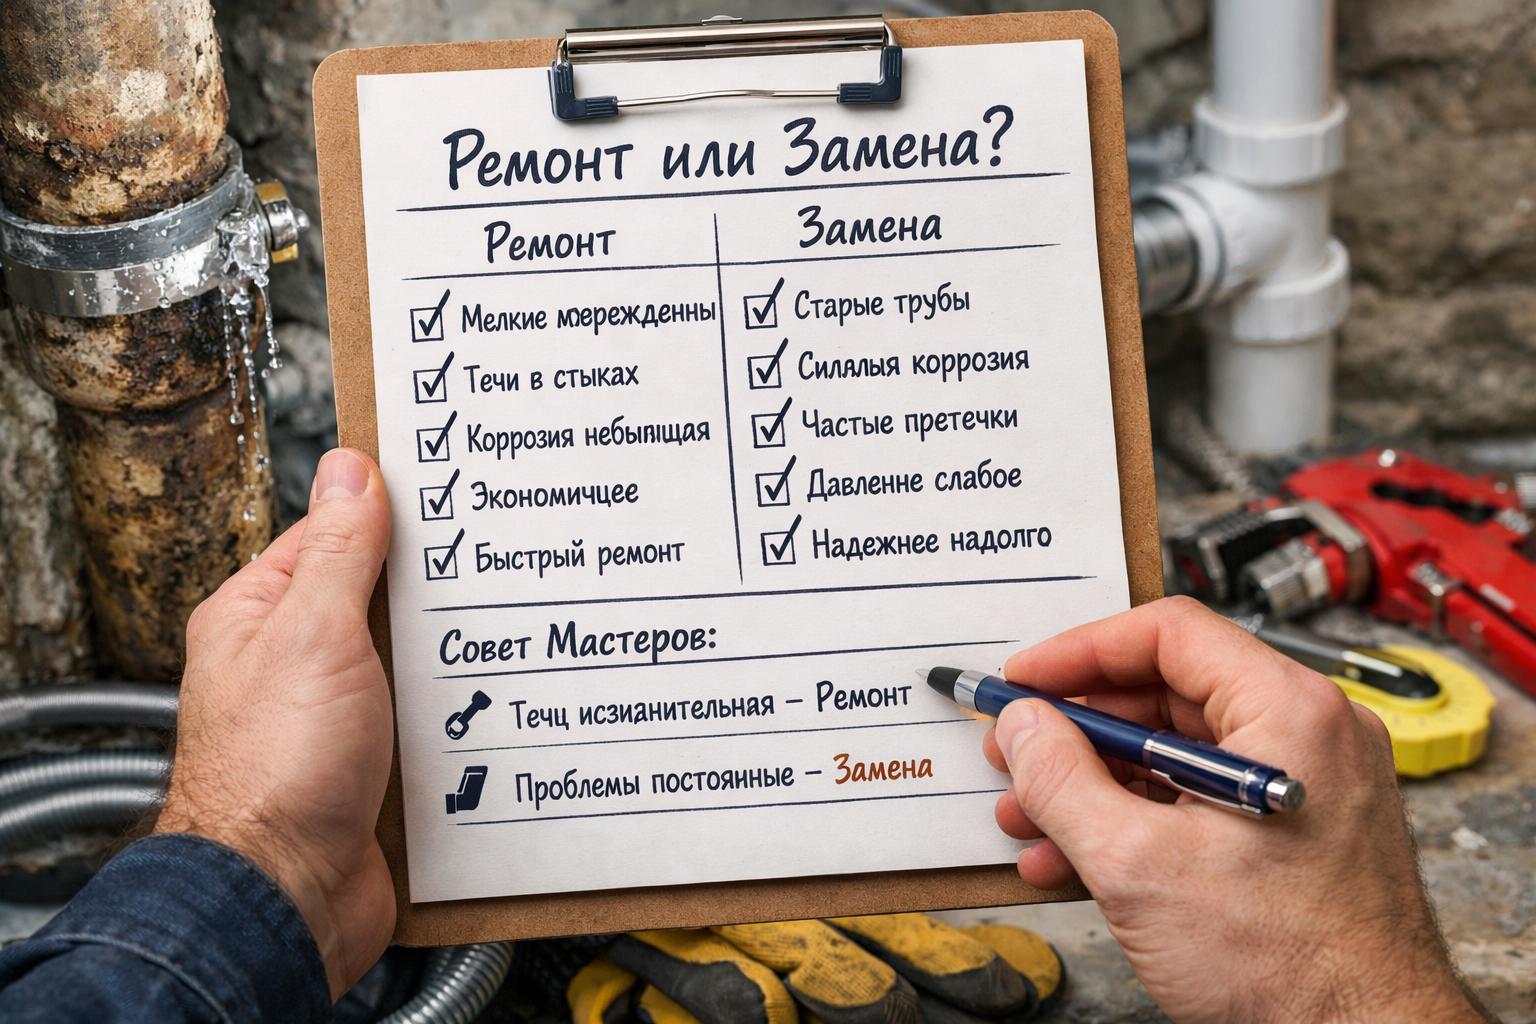 Ремонт или Замена?
Ремонт
Замена
Мелкие
Течи в стыках
Коррозия
Экономичцее
Быстрый ремонт
Старые трубы
коррозия
Частые претечки
Давленне слабое
Надежнее надолго
Совет Мастеров:
Течц исзианительная – Ремонт
Проблемы постоянные – Замена